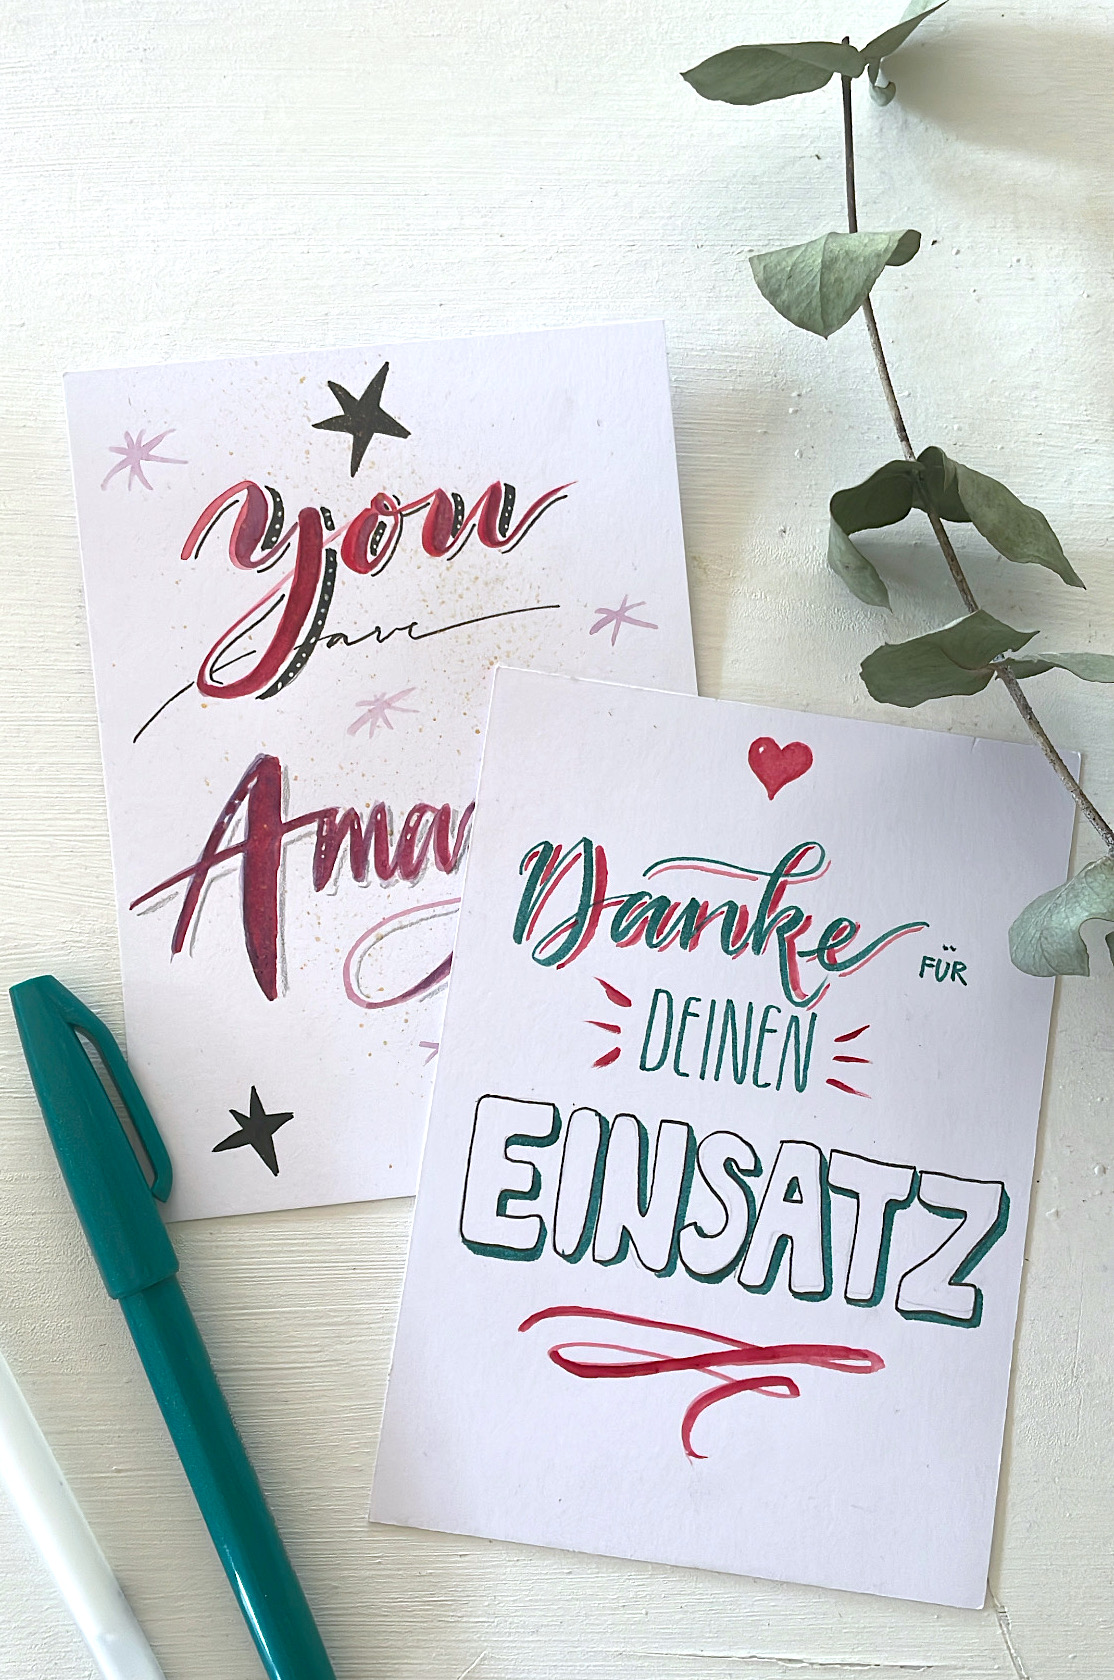 you
are
Ama
Danke FÜR
DEINEN
EINSATZ